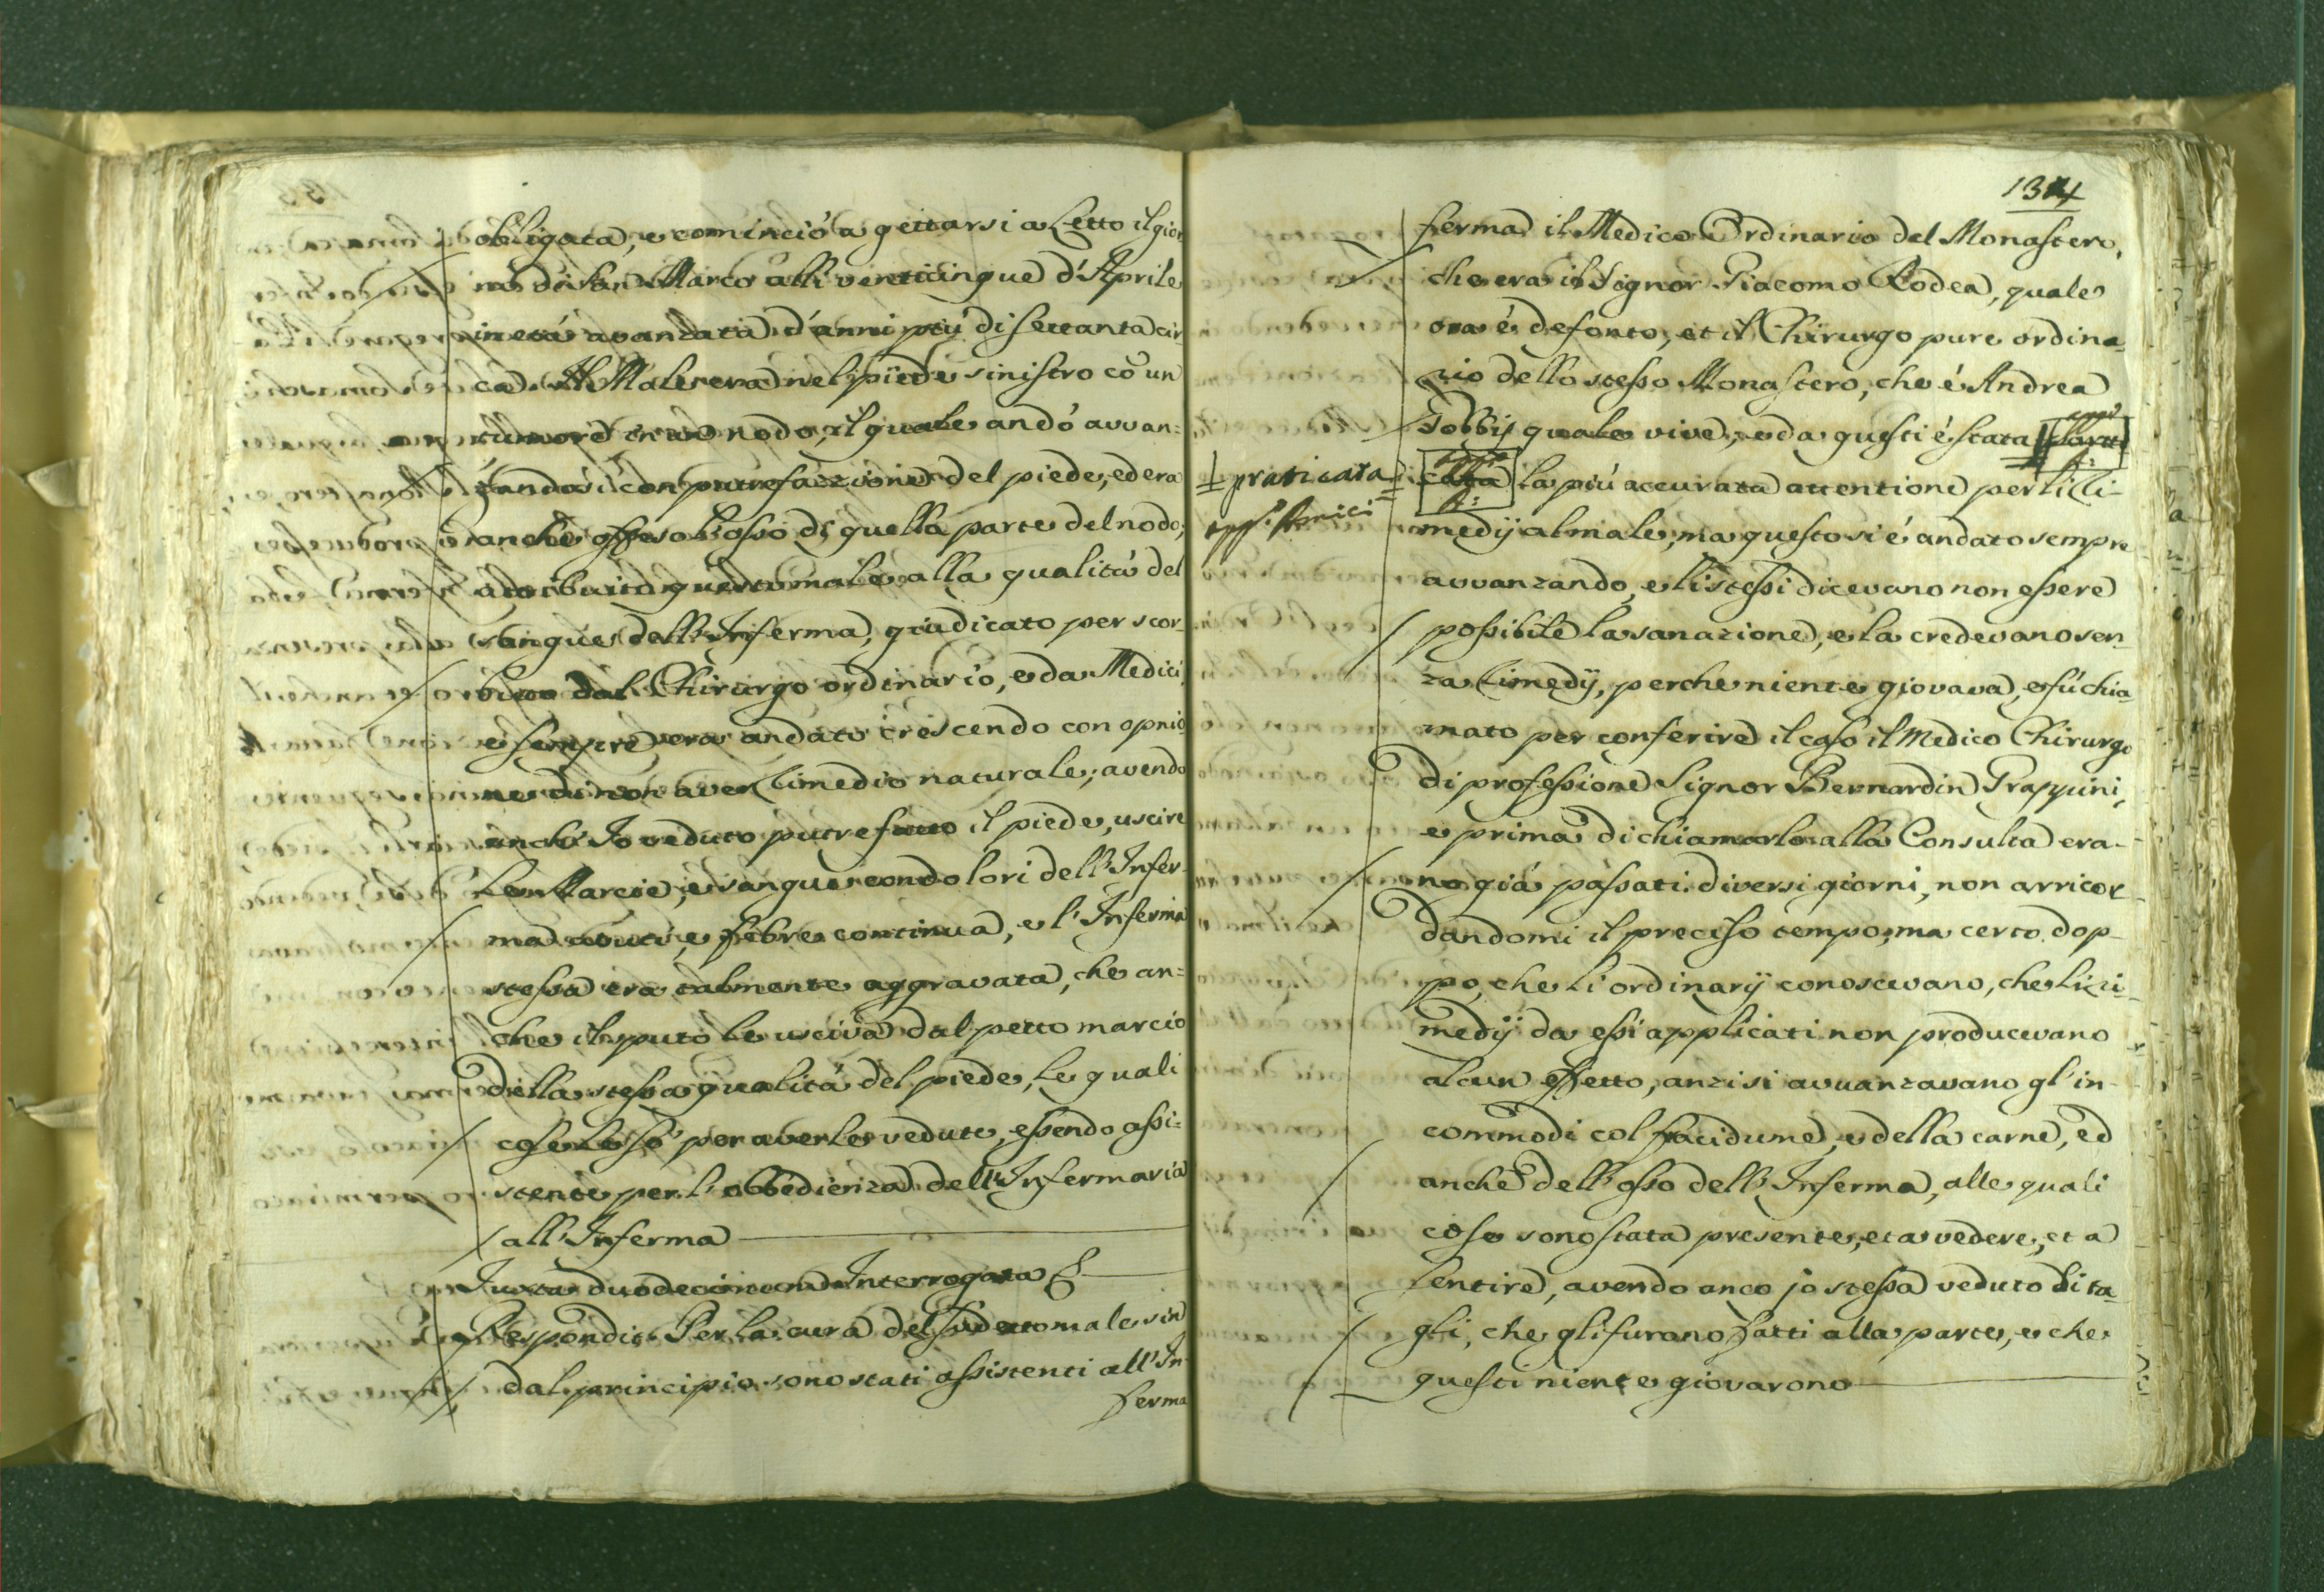 obligata, e cominciò a gettarsi a Letto il gior
no di San Marco alli venticinque d'Aprile
in età avanzata d'anni più di settanta cir
ca. Il Male era nel piede sinistro cõ un
tumore in un nodo, il quale andò avvan=
zandosi con putrefazzione del piede, ed era
anche offeso l'osso di quella parte del nodo;
attribuito questo male alla qualità del
sangue dell'Inferma, giudicato per scor-
buto dal Chirurgo ordinario, e da Medici,
e sempre era andato crescendo con opnio
ne di non aver rimedio naturale; avendo
anch'Io veduto putrefatto il piede, uscire
Le Marcie, e sangue con dolori dell'Infer-
ma acuti, e febre continua, e l'Inferma
stessa era talmente aggravata, che an=
che il sputo le usciva dal petto marcio
della stessa qualità del piede, Le quali
cose le sò per averle vedute, essendo assi=
stente per l'obbedienza dell'Infermaria
all'Inferma
Juxta duodecimum Interrogata &
Respondit Per la cura del sudetto male sin
dal principio sono stati assistenti all'In-
ferma
134
ferma il Medico Ordinario del Monastero,
che era il Signor Giacomo Rodea, quale
ora è defonto, et il Chirurgo pure ordina-
rio dello stesso Monastero, che è Andrea
Gobbij quale vive, e da questi è stata
praticata
la più accurata attentione per li ri-
medij al male, ma questo si è andato sempre
avvanzando, e li stessi dicevano non essere
possibile la sanazione, e la credevano sen-
za rimedij, perche niente giovava, e fù chia-
mato per conferire il caso il Medico Chirurgo
di professione Signor Bernardin Grappini,
e prima di chiamarlo alla Consulta era-
no già passati diversi giorni, non arricor-
dandomi il preciso tempo, ma certo dop-
po, che li ordinarij conoscevano, che li ri-
medij da essi applicati non producevano
alcun effetto, anzi si avvanzavano gl'in-
commodi col fracidume, e della carne, ed
anche dell'osso dell'Inferma, alle quali
cose sono stata presente, et a vedere, et a
sentire, avendo anco jo stessa veduto li ta-
gli, che gli furono fatti alla parte, e che
questi niente giovarono